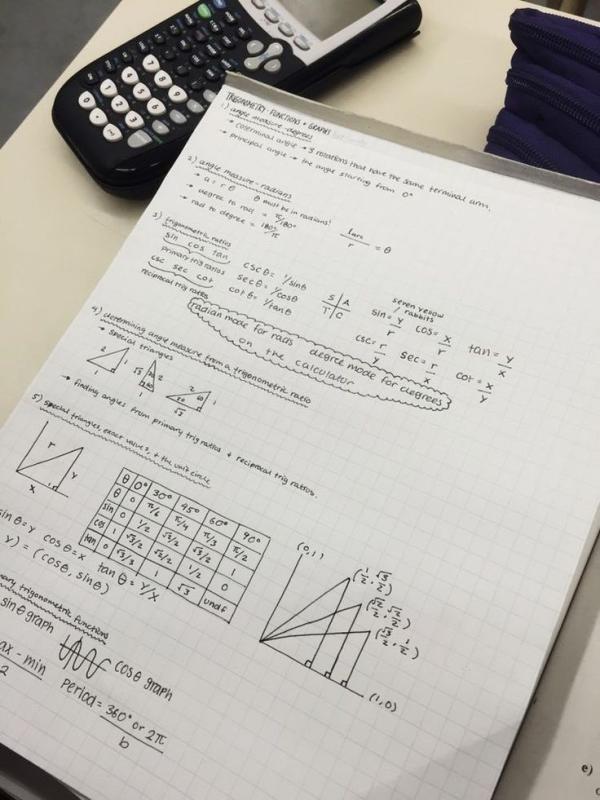 TRIGONOMETRY: FUNCTIONS + GRAPHS
1) angle measure - degrees
→ coterminal angle → rotations that have the same terminal arm.
→ principal angle → the angle starting from 0°
2) angle measure - radians
→ a = rθ θ must be in radians!
→ degree to rad = π/180°
→ rad to degree = 180°/π
larc/r = θ
3) trigonometric ratios
sin cos tan
primary trig ratios
csc sec cot
reciprocal trig ratios
cscθ = 1/sinθ
secθ = 1/cosθ
cotθ = 1/tanθ
S A
T C
seven yellow
/ rabbits
sin = y/r cos = x/r tan = y/x
csc = r/y sec = r/x cot = x/y
radian mode for rads degree mode for degrees
on the calculator
4) determining angle measure from a trigonometric ratio
→ special triangles
2 1
√3 2 30 60 1
2 1 30 60 √3
→ finding angles from primary trig ratios + reciprocal trig ratios.
5) special triangles, exact values, + the unit circle
r y x
θ 0° 30° 45° 60° 90°
θ 0 π/6 π/4 π/3 π/2
sin 0 1/2 √2/2 √3/2 1
cos 1 √3/2 √2/2 1/2 0
tan 0 √3/3 1 √3 undf
sinθ = y cosθ = x tanθ = y/x
y) = (cosθ, sinθ)
(0,1)
(1/2, √3/2)
(√2/2, √2/2)
(√3/2, 1/2)
(1,0)
trigonometric functions
sinθ graph cosθ graph
ax - min
2
Period = 360° or 2π
b
e)
7 8 9
4 5 6
1 2 3
0